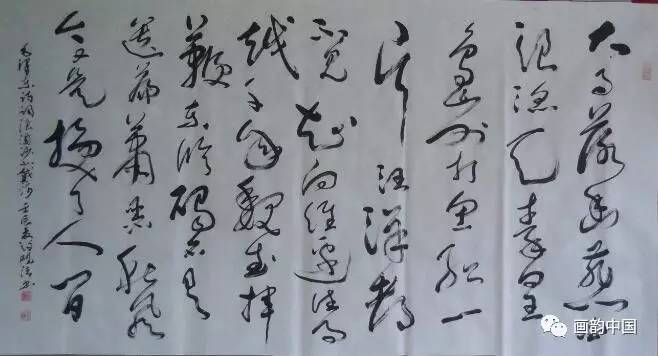 大雨落幽燕白
浪滔天秦皇
岛外打鱼船一
片汪洋都
不见知向谁边往事
越千年魏武挥
鞭东临碣石有
遗篇萧瑟秋风
今又是换了人间
毛泽东诗词浪淘沙北戴河 壬辰春 书
画韵中国